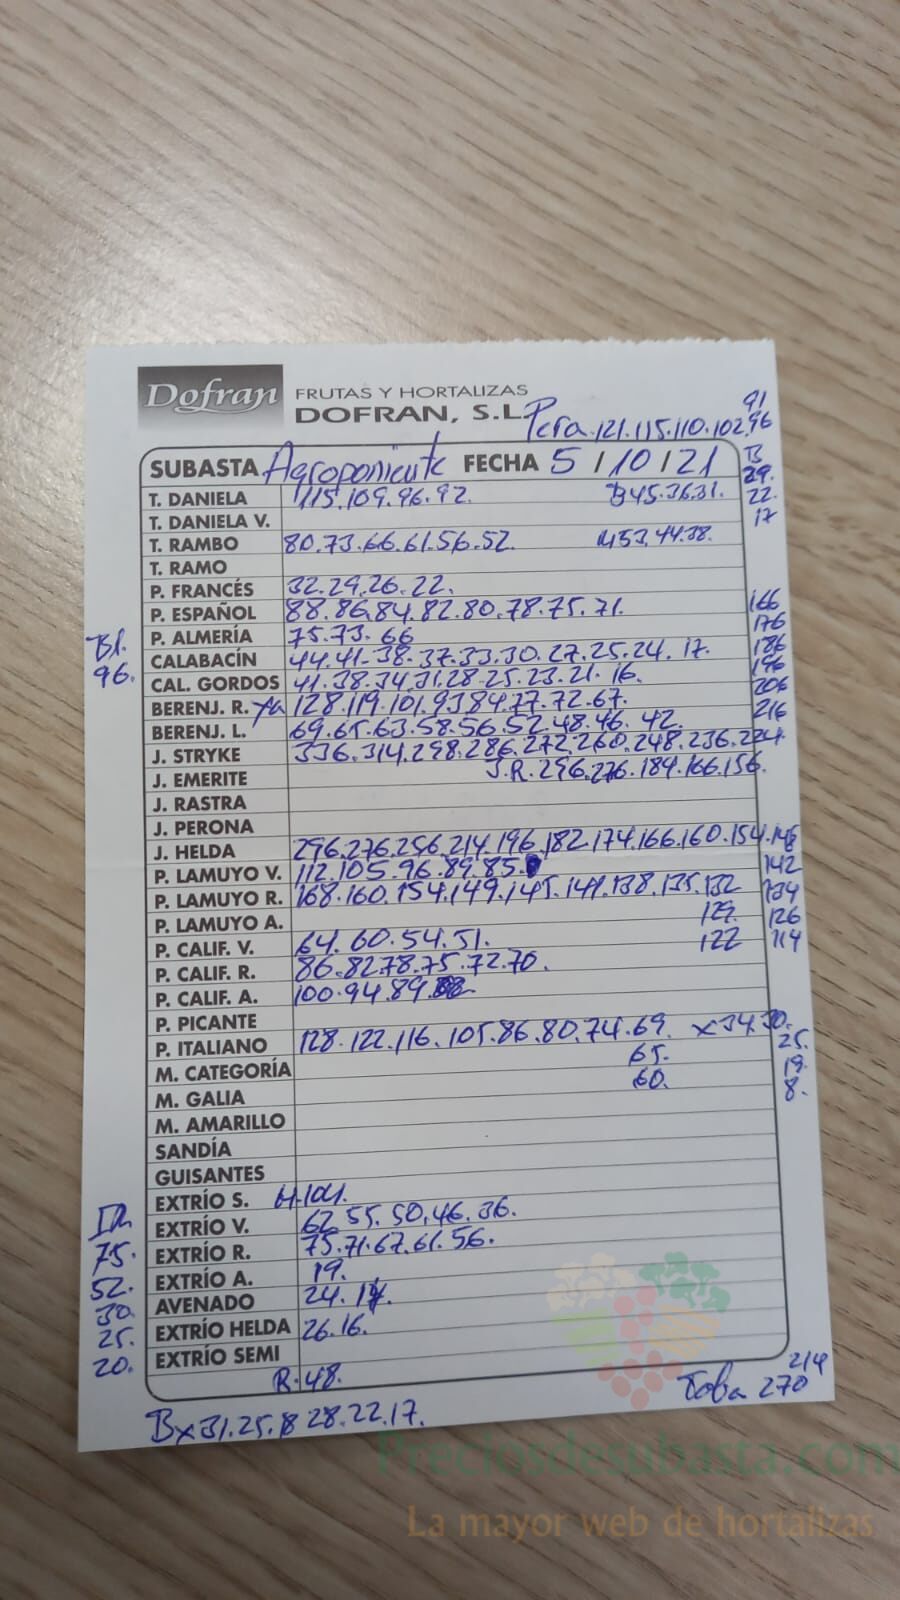 Dofran FRUTAS Y HORTALIZAS
DOFRAN, S.L.
Pera.121.115.110.102.96
91
SUBASTA Agroponiente FECHA 5/10/21 B
29.
T. DANIELA 115.109.96.92. B45.36.31. 22.
T. DANIELA V. 17
T. RAMBO 80.73.66.61.56.52. M53.44.38.
T. RAMO
P. FRANCÉS 32.29.26.22.
P. ESPAÑOL 88.86.84.82.80.78.75.71. 166
P. ALMERÍA 75.73.66 176
Bl.
96.
CALABACÍN 44.41.38.37.33.30.27.25.24.17. 186
CAL. GORDOS 41.38.34.31.28.25.23.21.16. 196
BERENJ. R. 128.119.101.93.84.77.72.67. 206
BERENJ. L. 69.65.63.58.56.52.48.46.42. 216
J. STRYKE 336.314.298.286.272.260.248.236.224.
J. EMERITE J.R.296.276.184.166.156.
J. RASTRA
J. PERONA
J. HELDA 296.276.256.214.196.182.174.166.160.154.148
P. LAMUYO V. 112.105.96.89.85. 142
P. LAMUYO R. 168.160.154.149.145.141.138.135.132 134
P. LAMUYO A. 129. 126
P. CALIF. V. 64.60.54.51. 122 114
P. CALIF. R. 86.82.78.75.72.70.
P. CALIF. A. 100.94.89.
P. PICANTE
P. ITALIANO 128.122.116.105.86.80.74.69. x34.30.
25.
M. CATEGORÍA 65. 19.
M. GALIA 60. 8.
M. AMARILLO
SANDÍA
GUISANTES
EXTRÍO S. H.104.
EXTRÍO V. 62.55.50.46.36.
EXTRÍO R. 75.71.67.61.56.
75.
EXTRÍO A. 19.
52.
AVENADO 24.
30.
EXTRÍO HELDA 26.16.
25.
EXTRÍO SEMI
20.
R.48.
214
Toba 270
Bx31.25.18 28.22.17.
Preciosdesubasta.com
La mayor web de hortalizas